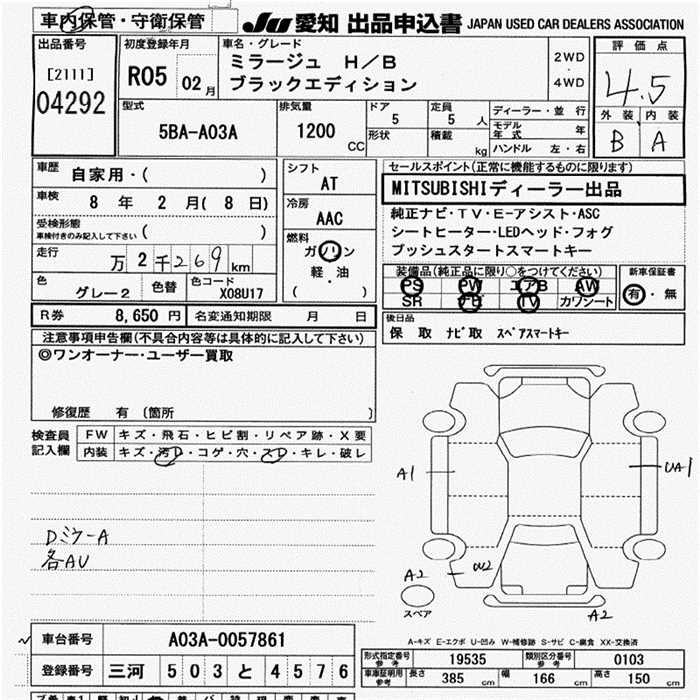 車内保管・守衛保管
JU 愛知 出品申込書 JAPAN USED CAR DEALERS ASSOCIATION
出品番号
[2111]
04292
初度登録年月
R05 02月
車名・グレード
ミラージュ H/B
ブラックエディション
2WD
・
4WD
評価点
4.5
外装 内装
B A
型式
5BA-A03A
排気量
1200
CC
ドア
5
定員
5 人
形状
積載
kg
ディーラー・並行
モデル年式 年
ハンドル 左・右
車歴
自家用・( )
車検
8 年 2 月( 8 日)
受検形態
車検付きのみ記入して下さい ( )
走行
万 2 千 269 km
色
グレー2
色替
色コード
X08U17
シフト
AT
冷房
AAC
燃料
ガソリン
軽・油
( )
セールスポイント(正常に機能するものに限ります)
MITSUBISHIディーラー出品
純正ナビ・TV・E-アシスト・ASC
シートヒーター・LEDヘッド・フォグ
プッシュスタートスマートキー
装備品(純正品に限り○をつけてください)
PS PW エアB AW
SR ナビ TV カワシート
新車保証書
有・無
R券 8,650 円
名変通知期限 月 日
後日品
保 取 ナビ取 スペアスマートキー
注意事項申告欄(不具合内容等は具体的に記入して下さい)
◎ワンオーナー・ユーザー買取
修復歴 有 〔箇所 〕
検査員
記入欄
FW キズ・飛石・ヒビ割・リペア跡・X要
内装 キズ・汚レ・コゲ・穴・スレ・キレ・破レ
Dミラー A
各AU
A1
UA1
A2
W2
A2
スペア
A-キズ E-エクボ U-凹み W-補修跡 S-サビ C-腐食 XX-交換済
車台番号 A03A-0057861
登録番号 三河 503 と 4576
形式指定番号
参考
19535
類別区分番号
参考
0103
車庫証明用
参考
長さ 385 cm
幅 166 cm
高さ 150 cm